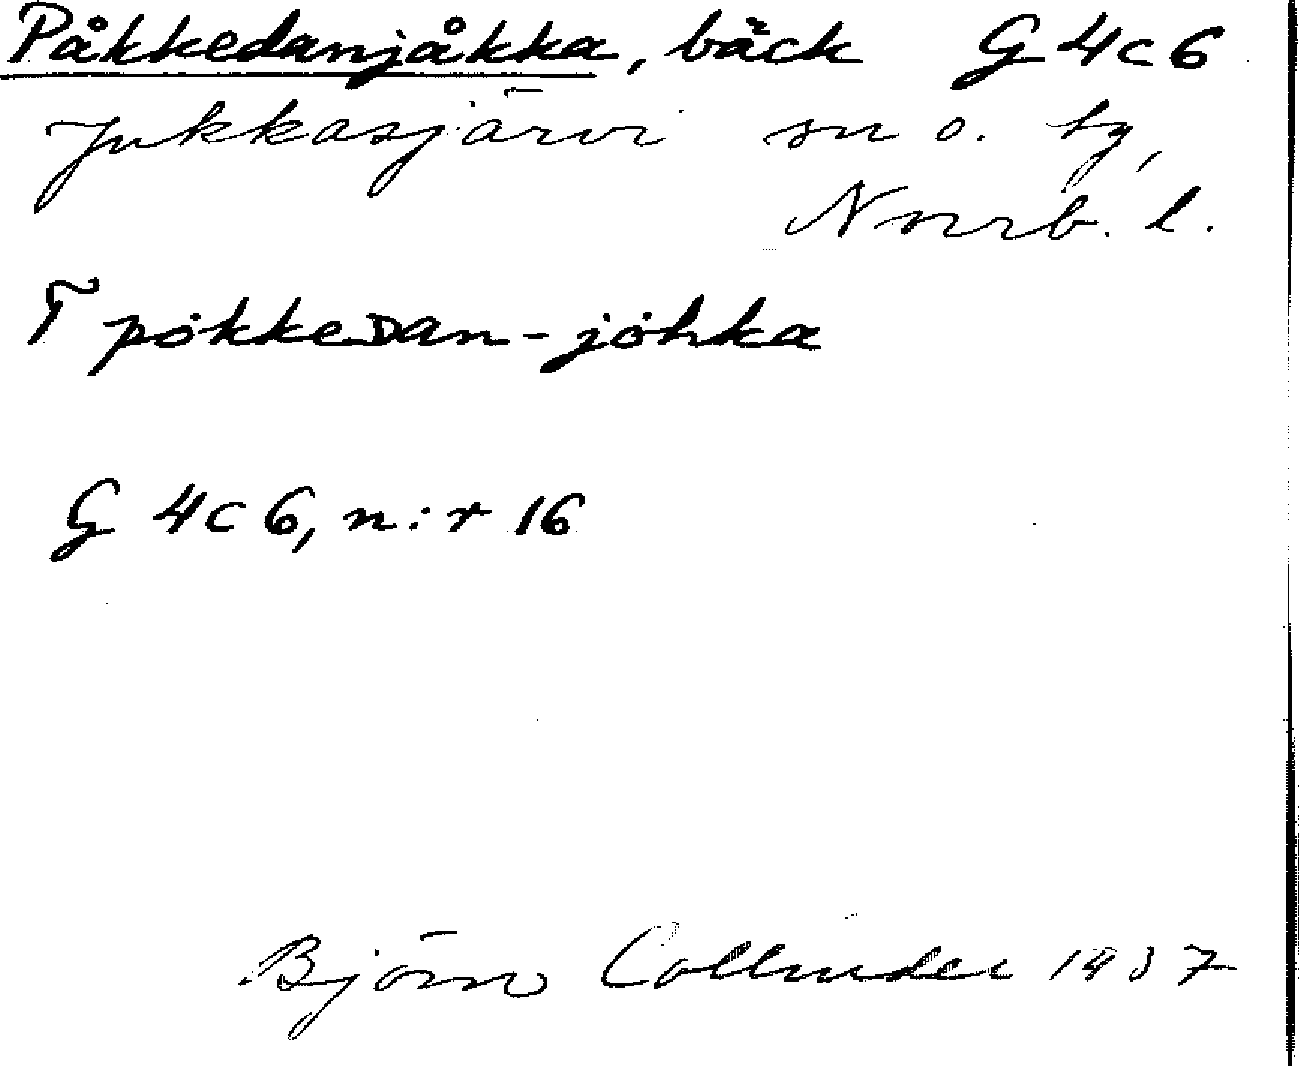 Påkkedanjåkka, bäck G 4c6
Jukkasjärvi sn o. tg,
Nnrb. l.
T pȯkkeᴅan-jȯhka
G 4c6, n:r 16
Björn Collinder 1937